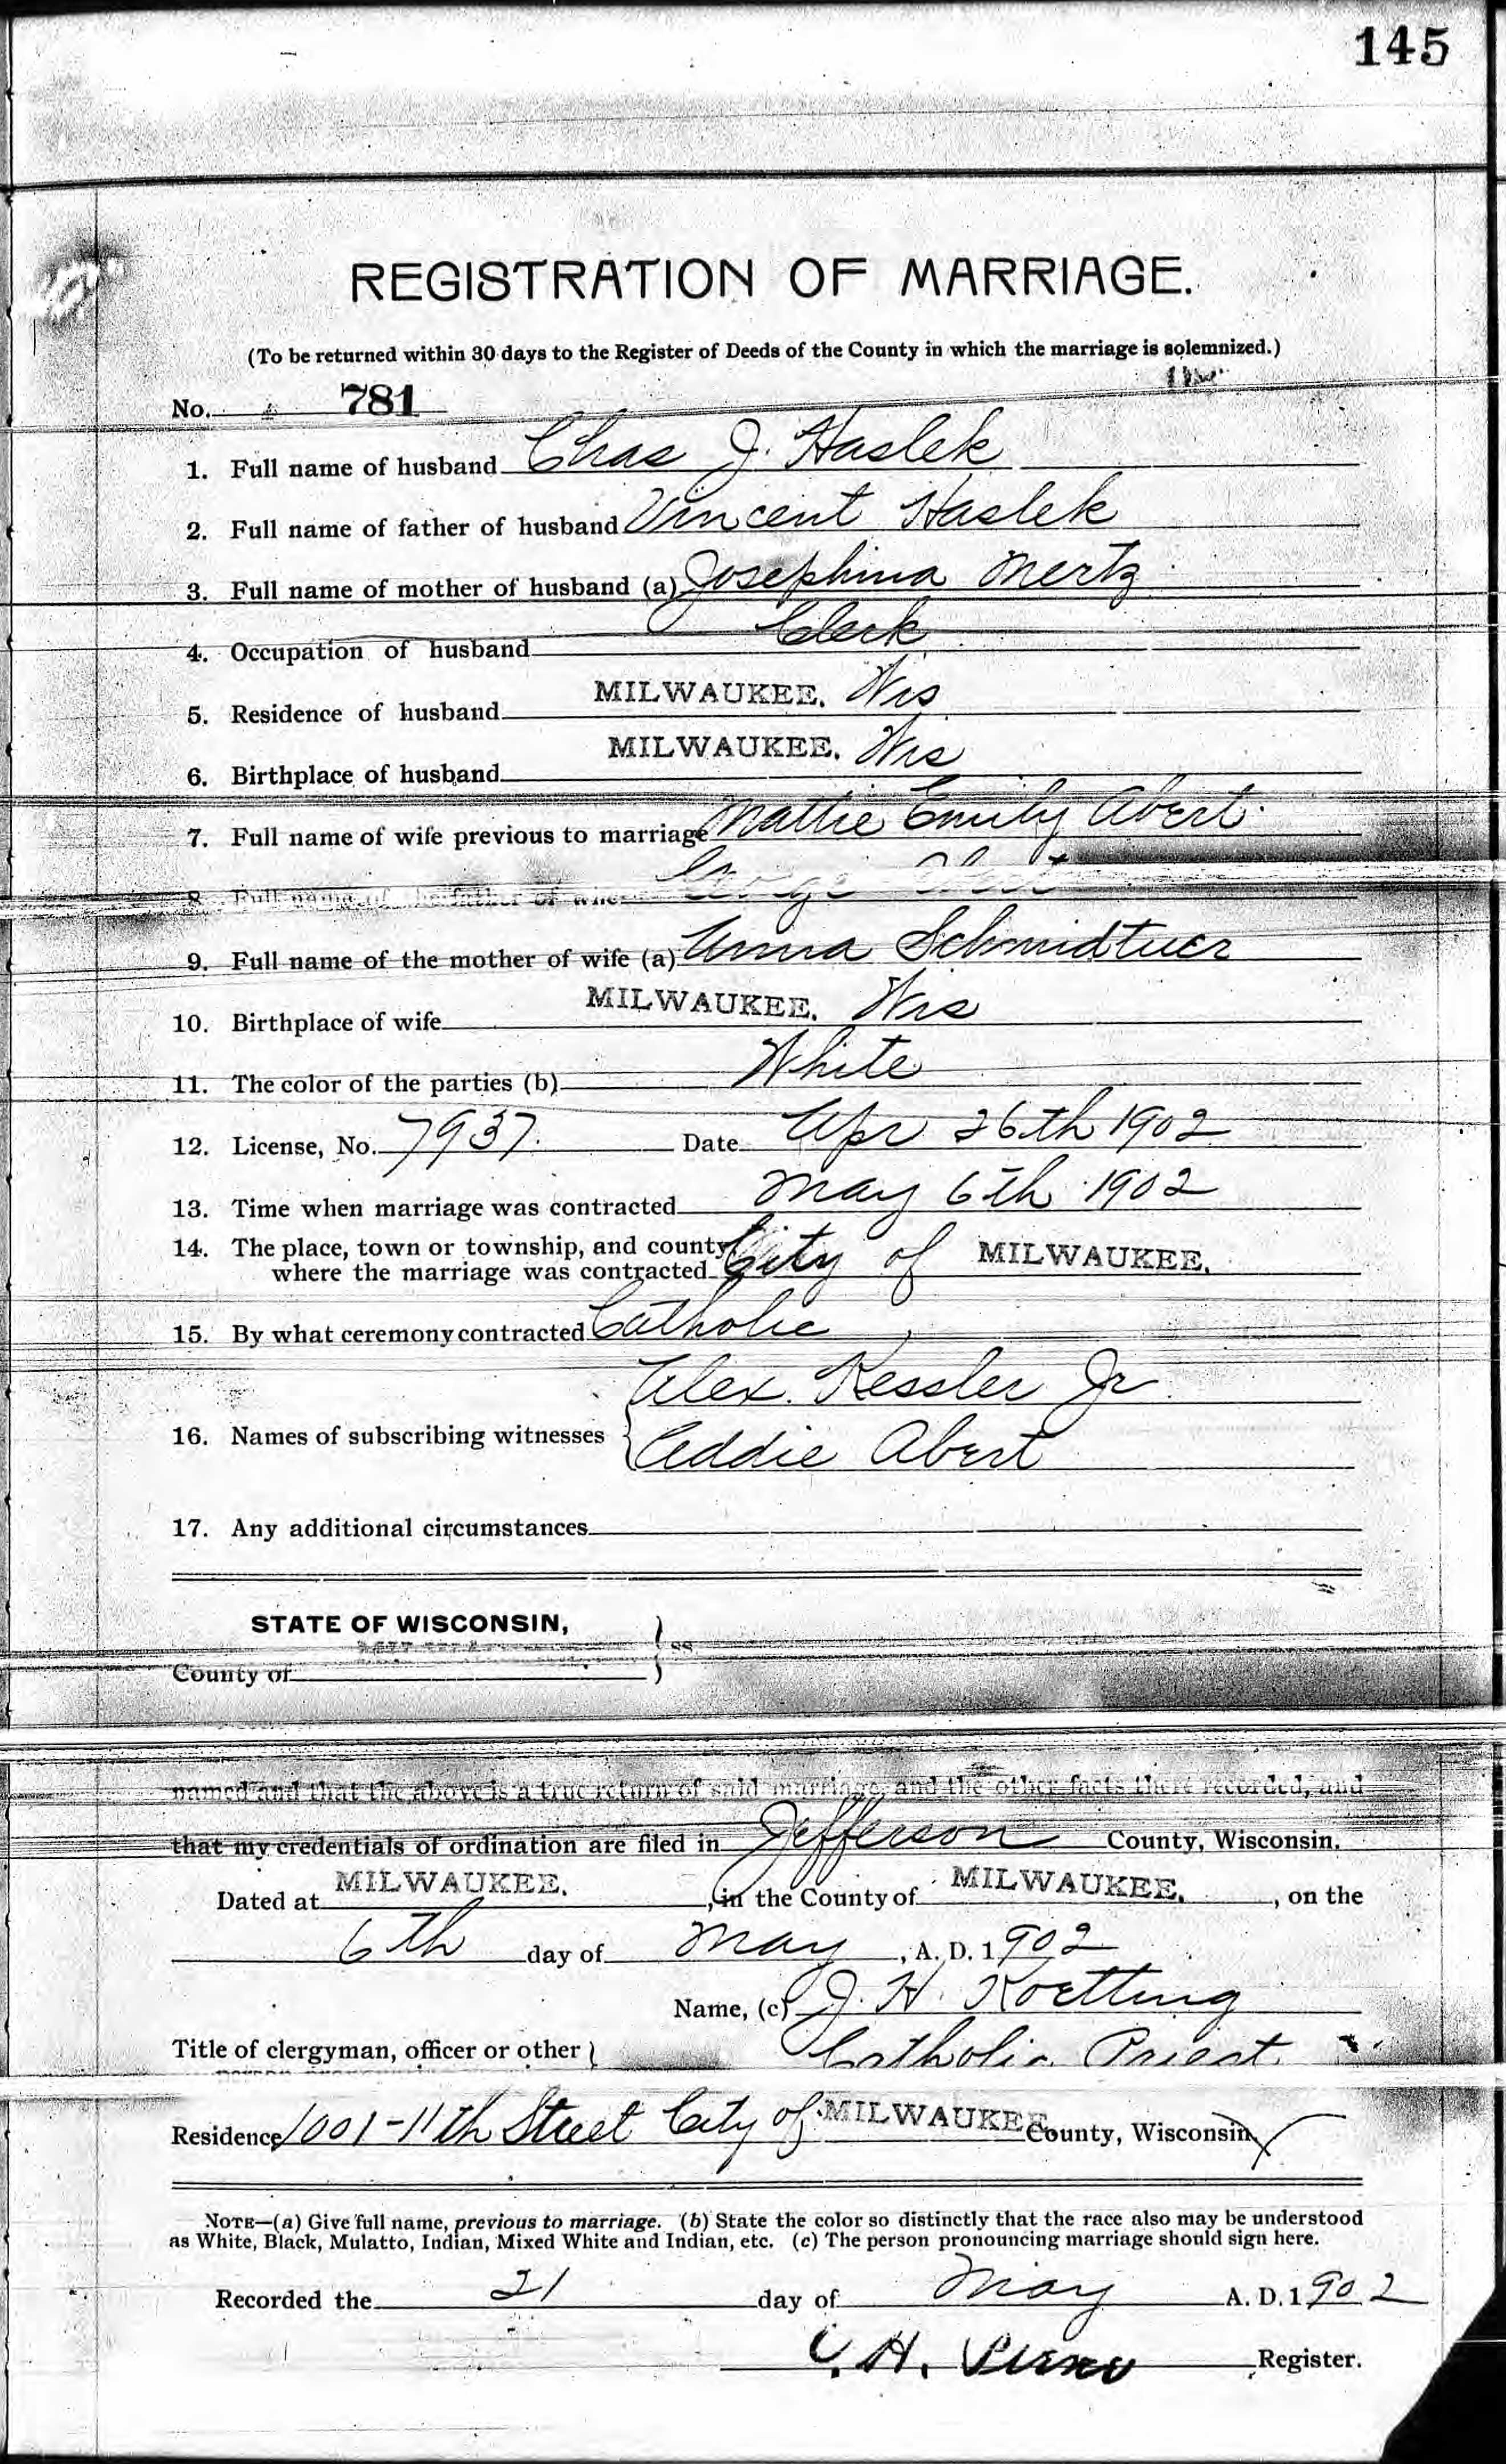 145
REGISTRATION OF MARRIAGE.
(To be returned within 30 days to the Register of Deeds of the County in which the marriage is solemnized.)
No. 781
1. Full name of husband Chas J. Haslek
2. Full name of father of husband Vincent Haslek
3. Full name of mother of husband (a) Josephina Mertz
4. Occupation of husband Clerk
5. Residence of husband MILWAUKEE, Wis
6. Birthplace of husband MILWAUKEE, Wis
7. Full name of wife previous to marriage Mattie Emily Abert
8. Full name of the father of George Abert
9. Full name of the mother of wife (a) Anna Schmidtner
10. Birthplace of wife MILWAUKEE, Wis
11. The color of the parties (b) White
12. License, No. 7937. Date Apr 26th 1902
13. Time when marriage was contracted May 6th 1902
14. The place, town or township, and county
where the marriage was contracted City of MILWAUKEE,
15. By what ceremony contracted Catholic
Alex. Kessler Jr
16. Names of subscribing witnesses
Addie Abert
17. Any additional circumstances
STATE OF WISCONSIN,
County of ss
named and that the above is a true return of said marriage, and the other facts there recorded, and
that my credentials of ordination are filed in Jefferson County, Wisconsin.
Dated at MILWAUKEE, , in the County of MILWAUKEE, , on the
6th day of May , A. D. 1902
Name, (c) J. H. Koetting
Title of clergyman, officer or other Catholic Priest
Residence 1001-11th Street City of MILWAUKEE County, Wisconsin
NOTE—(a) Give full name, previous to marriage. (b) State the color so distinctly that the race also may be understood
as White, Black, Mulatto, Indian, Mixed White and Indian, etc. (c) The person pronouncing marriage should sign here.
Recorded the 21 day of May A. D. 1902
C. H. Register.